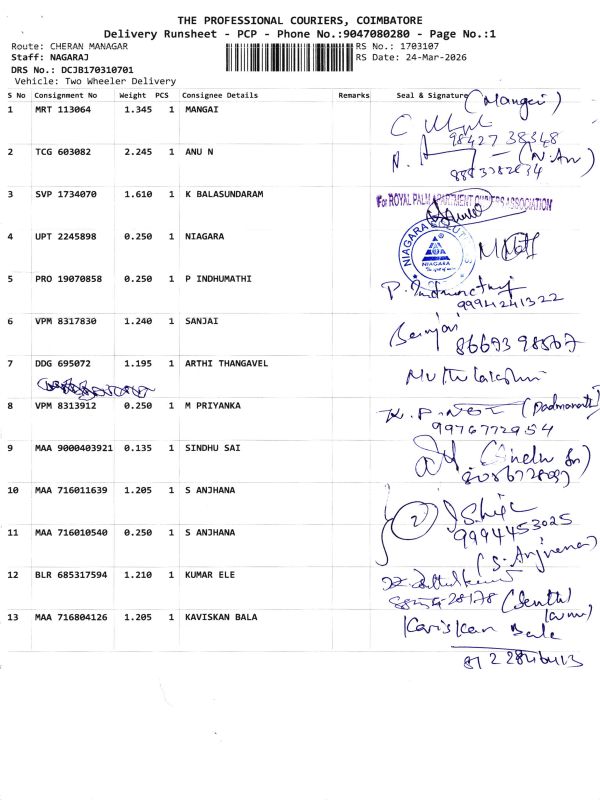 THE PROFESSIONAL COURIERS, COIMBATORE
Delivery Runsheet - PCP - Phone No.:9047080280 - Page No.:1
Route: CHERAN MANAGAR RS No.: 1703107
Staff: NAGARAJ RS Date: 24-Mar-2026
DRS No.: DCJB170310701
Vehicle: Two Wheeler Delivery
S No Consignment No Weight PCS Consignee Details Remarks Seal & Signature
1 MRT 113064 1.345 1 MANGAI (Mangai)
98427 38348
2 TCG 603082 2.245 1 ANU N (N.An)
3 SVP 1734070 1.610 1 K BALASUNDARAM For ROYAL PALM APARTMENT OWNERS ASSOCIATION
4 UPT 2245898 0.250 1 NIAGARA NIAGARA
NIAGARA
5 PRO 19070858 0.250 1 P INDHUMATHI P.
99941241322
6 VPM 8317830 1.240 1 SANJAI Sanjai
8667398567
7 DDG 695072 1.195 1 ARTHI THANGAVEL Muthulakshmi
8 VPM 8313912 0.250 1 M PRIYANKA
9976772954
9 MAA 9000403921 0.135 1 SINDHU SAI
10 MAA 716011639 1.205 1 S ANJHANA 2
9994453025
11 MAA 716010540 0.250 1 S ANJHANA
12 BLR 685317594 1.210 1 KUMAR ELE
13 MAA 716804126 1.205 1 KAVISKAN BALA Kaviskan Bala